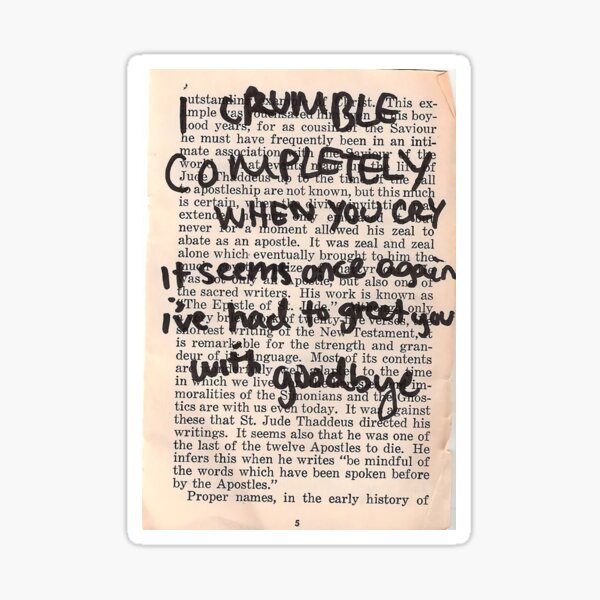 I CRUMBLE
COMPLETELY
WHEN YOU CRY
it seems once again
i've had to greet you
with goodbye
utstanding of Christ. This ex-
mple was boy-
ood years, for as cousin of the Saviour
he must have frequently been in an inti-
mate association of the
events made up the life of
Jude Thaddeus up to the time of the call
apostleship are not known, but this much
is certain, the divine
never for a moment allowed his zeal to
abate as an apostle. It was zeal and zeal
alone which eventually brought to him the
but also one of
the sacred writers. His work is known as
"The Epistle of St. Jude." only
of twenty-five verses,
shortest writing of the New Testament, it
is remarkable for the strength and gran-
deur of its language. Most of its contents
to the time
in which we live im-
moralities of the Simonians and the Gnos-
tics are with us even today. It was against
these that St. Jude Thaddeus directed his
writings. It seems also that he was one of
the last of the twelve Apostles to die. He
infers this when he writes "be mindful of
the words which have been spoken before
by the Apostles."
Proper names, in the early history of
5